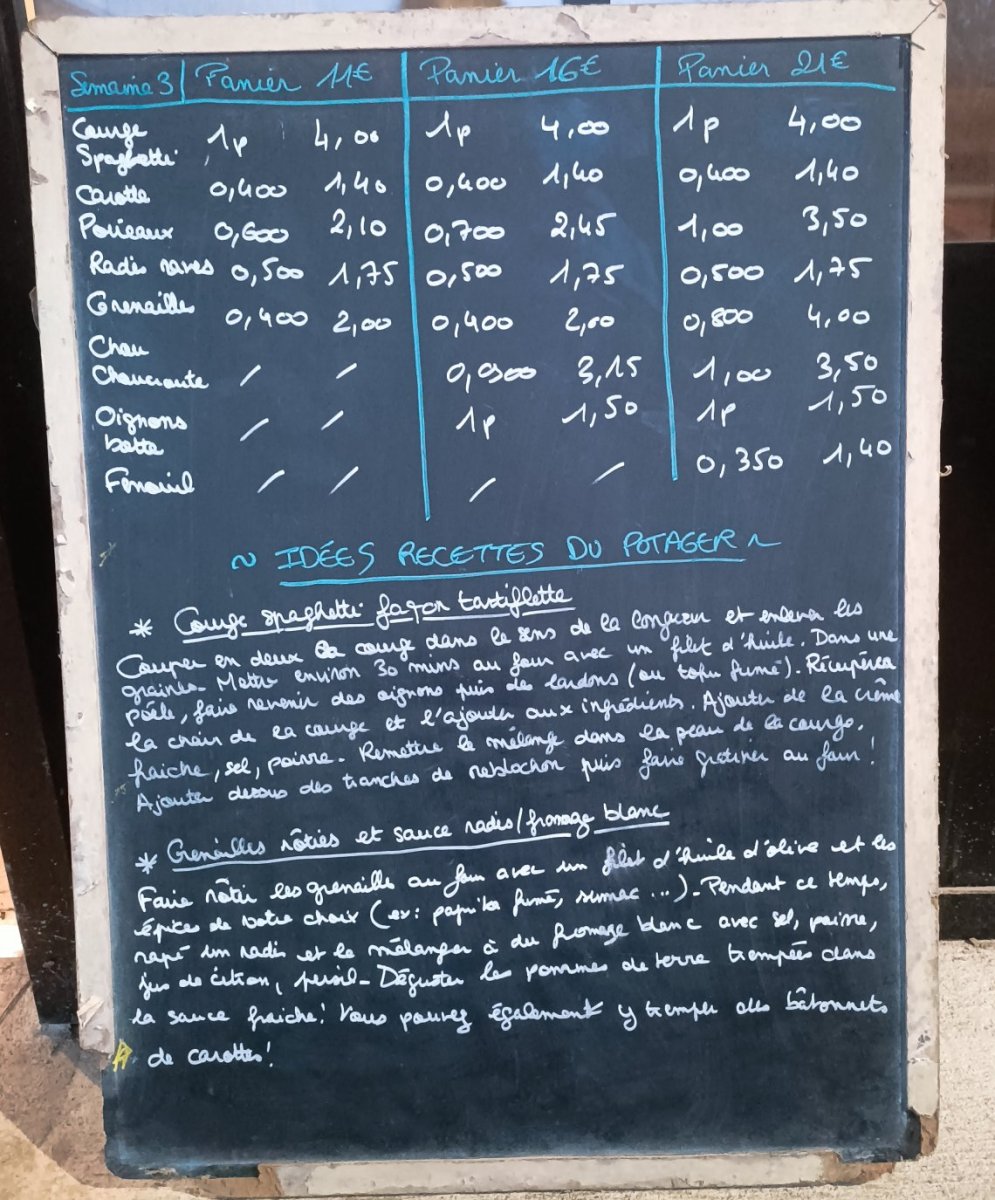 Semaine 3 Panier 11€ Panier 16€ Panier 21€
Courge Spaghetti 1p 4,00 1p 4,00 1p 4,00
Carotte 0,400 1,40 0,400 1,40 0,400 1,40
Poireaux 0,600 2,10 0,700 2,45 1,00 3,50
Radis raves 0,500 1,75 0,500 1,75 0,500 1,75
Grenailles 0,400 2,00 0,400 2,00 0,800 4,00
Chou Choucroute / / 0,0900 3,15 1,00 3,50
Oignons botte / / 1p 1,50 1p 1,50
Fenouil / / / / 0,350 1,40
~ IDÉES RECETTES DU POTAGER ~
* Courge spaghetti façon tartiflette
Couper en deux la courge dans le sens de la longueur et enlever les
graines. Mettre environ 30 mins au four avec un filet d'huile. Dans une
poêle, faire revenir des oignons puis des lardons (ou tofu fumé). Récupérer
la chair de la courge et l'ajouter aux ingrédients. Ajouter de la crème
fraiche, sel, poivre. Remettre le mélange dans la peau de la courge.
Ajouter dessus des tranches de reblochon puis faire gratiner au four !
* Grenailles rôties et sauce radis/fromage blanc
Faire rôtir les grenaille au four avec un filet d'huile d'olive et les
épices de votre choix (ex: paprika fumé, sumac ...). Pendant ce temps,
rapé un radis et le mélanger à du fromage blanc avec sel, poivre,
jus de citron, persil. Déguster les pommes de terre trempées dans
la sauce fraiche! Vous pouvez également y tremper des bâtonnets
de carottes!